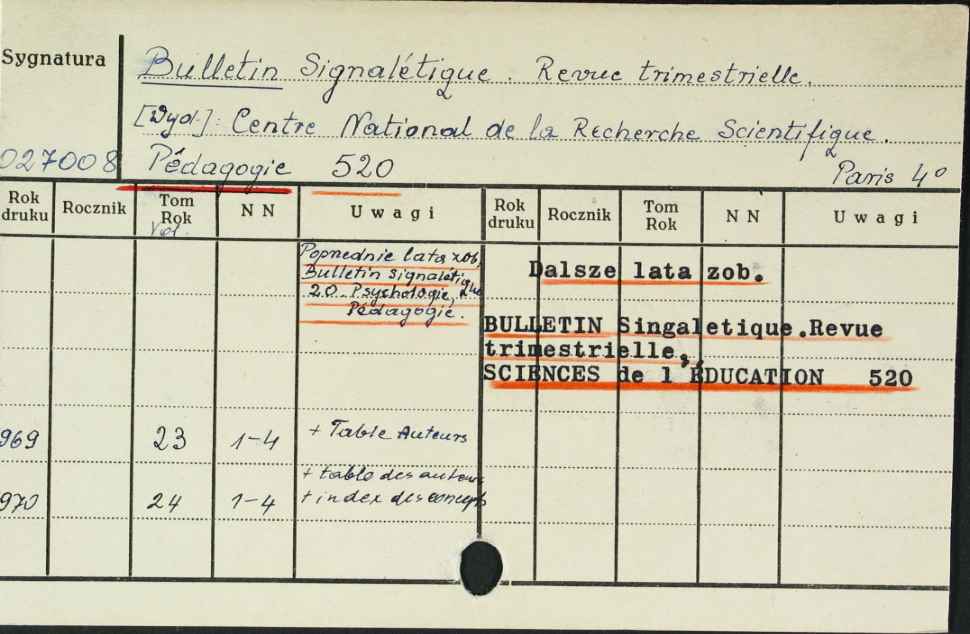 Sygnatura
Bulletin Signalétique. Revue trimestrielle.
[Wyd.]: Centre National de la Recherche Scientifique.
027008 Pédagogie 520 Paris 4°
Rok druku Rocznik Tom Rok Vol. N N Uwagi Rok druku Rocznik Tom Rok N N Uwagi
Poprzednie lata zob.
Bulletin signalétique
20 Psychologie,
Pédagogie.
Dalsze lata zob.
BULLETIN Singaletique.Revue
trimestrielle,
SCIENCES de l EDUCATION 520
969 23 1-4 + Table Auteurs
+ table des auteurs
970 24 1-4 + index des concepts